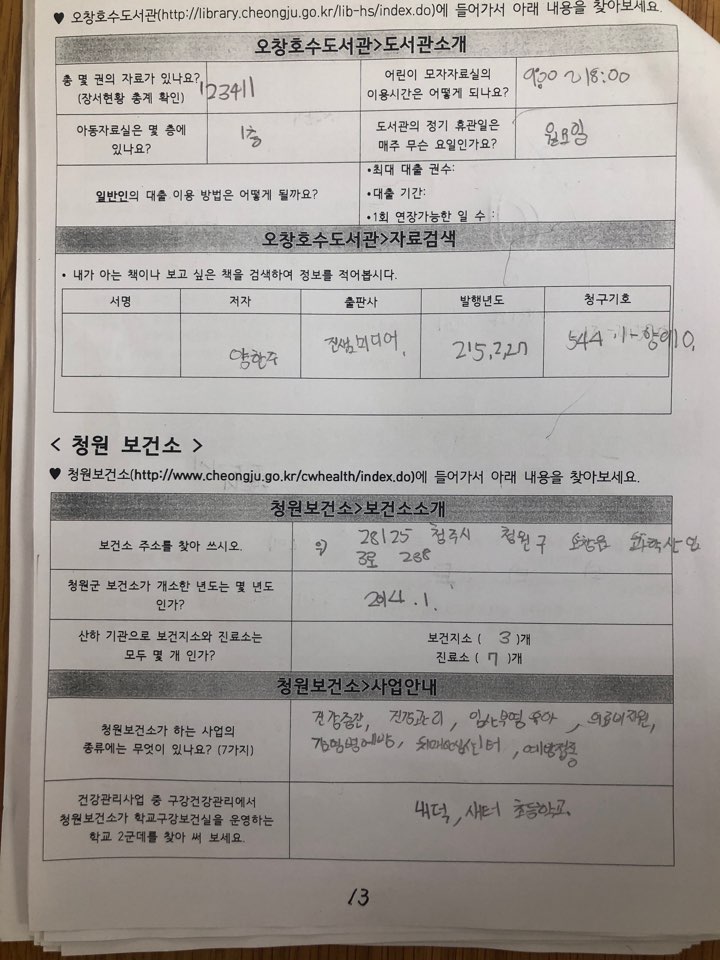 ♥ 오창호수도서관(http://library.cheongju.go.kr/lib-hs/index.do)에 들어가서 아래 내용을 찾아보세요.
오창호수도서관>도서관소개
총 몇 권의 자료가 있나요?
(장서현황 총계 확인)
123411
어린이 모자자료실의
이용시간은 어떻게 되나요?
9:00 ~ 18:00
아동자료실은 몇 층에
있나요?
1층
도서관의 정기 휴관일은
매주 무슨 요일인가요?
월요일
일반인의 대출 이용 방법은 어떻게 될까요?
•최대 대출 권수:
•대출 기간:
•1회 연장가능한 일 수 :
오창호수도서관>자료검색
• 내가 아는 책이나 보고 싶은 책을 검색하여 정보를 적어봅시다.
서명 저자 출판사 발행년도 청구기호
양한주 진샘미디어. 215.2.27 544.1-
< 청원 보건소 >
♥ 청원보건소(http://www.cheongju.go.kr/cwhealth/index.do)에 들어가서 아래 내용을 찾아보세요.
청원보건소>보건소소개
보건소 주소를 찾아 쓰시오.
우) 28125 청주시 청원구 오창읍 과학산업
3로 238
청원군 보건소가 개소한 년도는 몇 년도
인가?
2014.1.
산하 기관으로 보건지소와 진료소는
모두 몇 개 인가?
보건지소 ( 3 )개
진료소 ( 7 )개
청원보건소>사업안내
청원보건소가 하는 사업의
종류에는 무엇이 있나요? (7가지)
건강증진, 건강관리, 임산부영유아, 의료비지원,
감염병예방, 치매예방센터, 예방접종
건강관리사업 중 구강건강관리에서
청원보건소가 학교구강보건실을 운영하는
학교 2군데를 찾아 써 보세요.
내덕, 새터 초등학교.
13